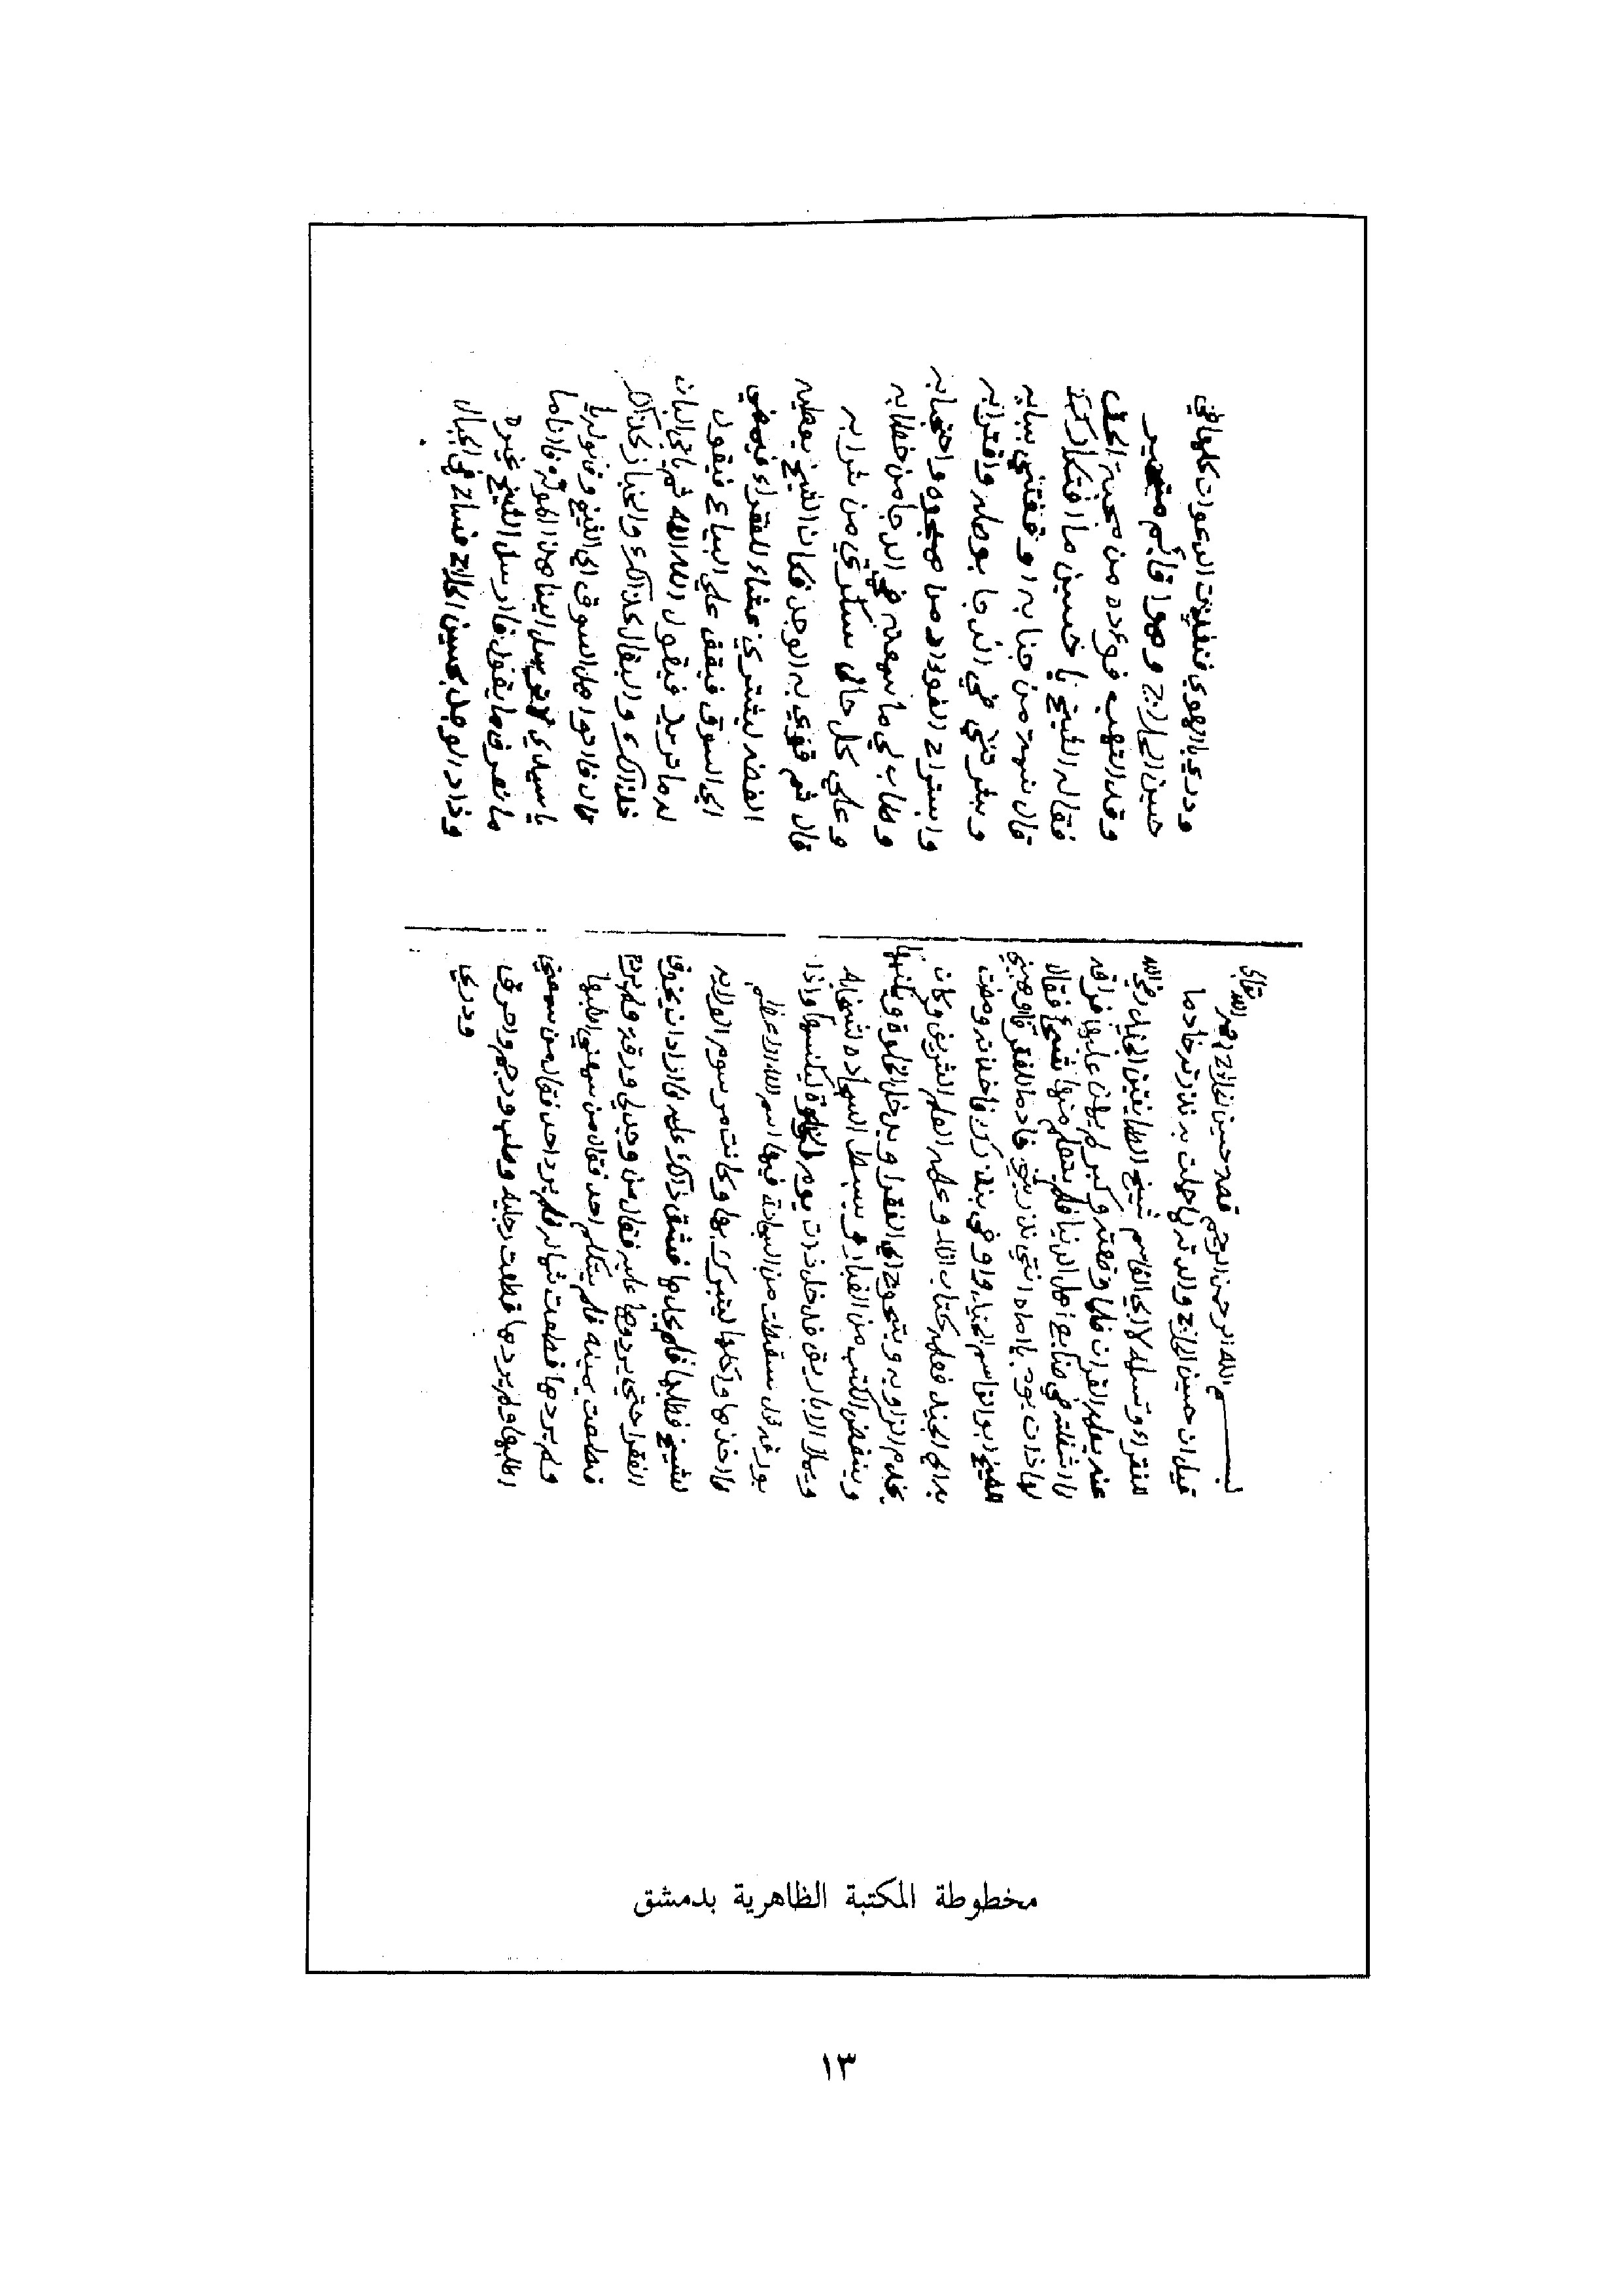 بسم الله الرحمن الرحيم قصة حسين الحلاج رحمه الله تعالى
قيل ان حسين الحلاج والدته لما حملت به نذرته خادما
للفقراء وتسلمه لابي القاسم شيخ الطايفتين الجنيد رضي الله
عنه يعلمه القران فلما وضعته وكبر لم يهن عليها فراقه
فاشغلته في صنايع اهل الدنيا فلم يتعلم منها شيئا فقال
لها ذات يوم يا اماه انتي نذرتيني خادما للفقرا فاوهبيني
للشيخ ابو القاسم الجنيد واوفي بنذرك فاخذته ومضت
به الي الجنيد فعلمه كتاب الله وعلمه العلم الشريف وكان
يخدم الزاويه ويتحوج الي الفقرا ويدخل الخلوة ويكنسها
وينفض الكتب من الغبار ويبسط السجاده لشيخه
ويملا الاباريق فدخل ذات يوم الخلوة ليكنسها واذا
بورقه قد سقطت من السجادة فيها اسم الله الاعظم
فاخذها واكلها ليتبرك بها وكانت مرسوم الولايه
لشيخ فطلبها فلم يجدها فشق ذلك عليه فازادات بحرق
الفقرا حتي يردوها عليه فقال من وجد لي ورقه ولم يرد
قطعت يمينه فلم يتكلم احد فقال من سمعني اطلبها
ولم يردها قطعت شماله فلم يرد احد فقال من سمعني
اطلبها ولم يردها قطعت رجليه وصلب ورجم واحرق
وذري
وذري بالهوي فنفذت الدعوات كلها في
حسين الحلاج وهو قائم متحير
وقد التهب فوءده من محبة الحق
فقال له الشيخ يا حسين ما افتكارك
قال شهدة من جنابه اوقفتني ببابه
وبشرتني في الدجا بوصله واقترابه
واستراح الفوءاد من هجوه واحتجابه
وطاب لي ما سمعته في الدجا من خطابه
وعلي كل حال سكرتي من شرابه
قال ثم قوي به الوجد فكان الشيخ يعطيه
الفضه ليشتري عشاء للفقراء فيمضي
الي السوق فيقف علي البياع فيقول
له ما تريد فيقول الله الله ثم ياتي البان
فلذلك والبقال كذلك والخباز كذلك
قال فاتوا اهل السوق الي الشيخ وقالوله يا
يا سيدي لا ترسل الينا هذا الموله فاننا ما
ما نعرف ما يقول فارسل الشيخ غيره
وزاد الوجد بحسين الحلاج فساح في الجبال
مخطوطة المكتبة الظاهرية بدمشق
١٣